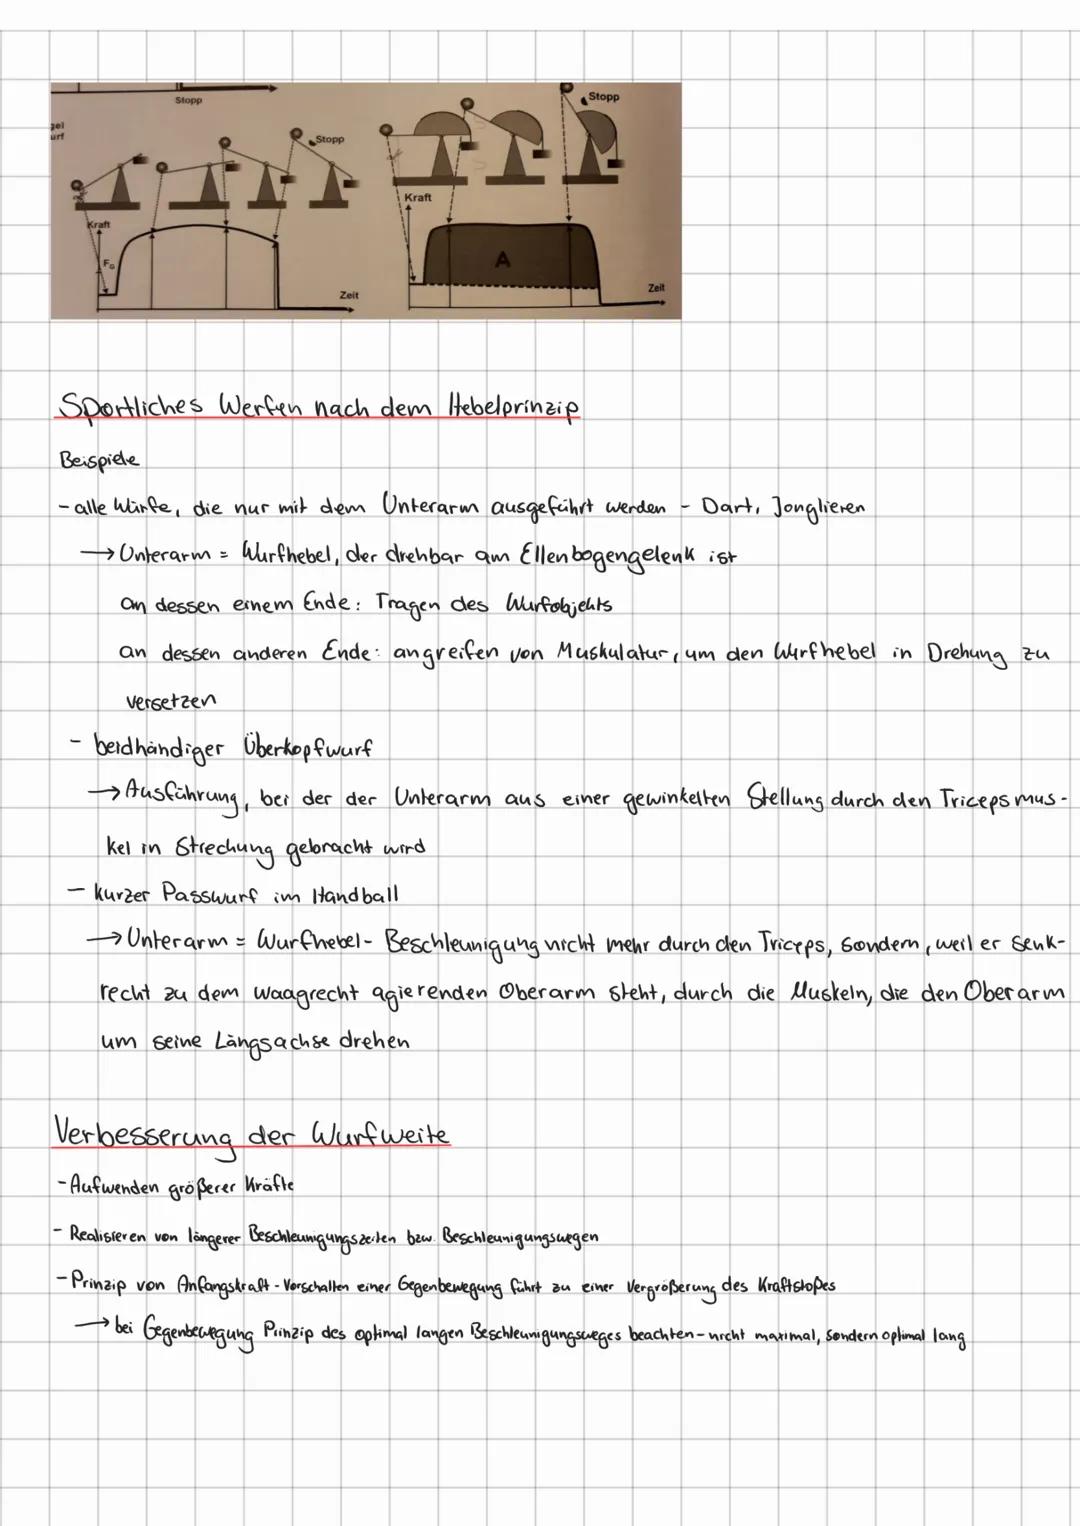 Stopp
gel
urf
Stopp
Kraft
F_G
Zeit
Stopp
Kraft
A
Zeit
Sportliches Werfen nach dem Hebelprinzip
Beispiele
- alle Würfe, die nur mit dem Unterarm ausgeführt werden - Dart, Jonglieren
→ Unterarm = Wurfhebel, der drehbar am Ellenbogengelenk ist
an dessen einem Ende: Tragen des Wurfobjekts
an dessen anderen Ende: angreifen von Muskulatur, um den Wurfhebel in Drehung zu
versetzen
- beidhändiger Überkopfwurf
→ Ausführung, bei der der Unterarm aus einer gewinkelten Stellung durch den Tricepsmus-
kel in Streckung gebracht wird
- kurzer Passwurf im Handball
→ Unterarm = Wurfhebel - Beschleunigung nicht mehr durch den Triceps, sondern, weil er senk-
recht zu dem waagrecht agierenden Oberarm steht, durch die Muskeln, die den Oberarm
um seine Längsachse drehen
Verbesserung der Wurfweite
- Aufwenden größerer Kräfte
- Realisieren von längerer Beschleunigungszeiten bzw. Beschleunigungswegen
- Prinzip von Anfangskraft - Vorschalten einer Gegenbewegung führt zu einer Vergrößerung des Kraftstoßes
→ bei Gegenbewegung Prinzip des optimal langen Beschleunigungsweges beachten - nicht maximal, sondern optimal lang